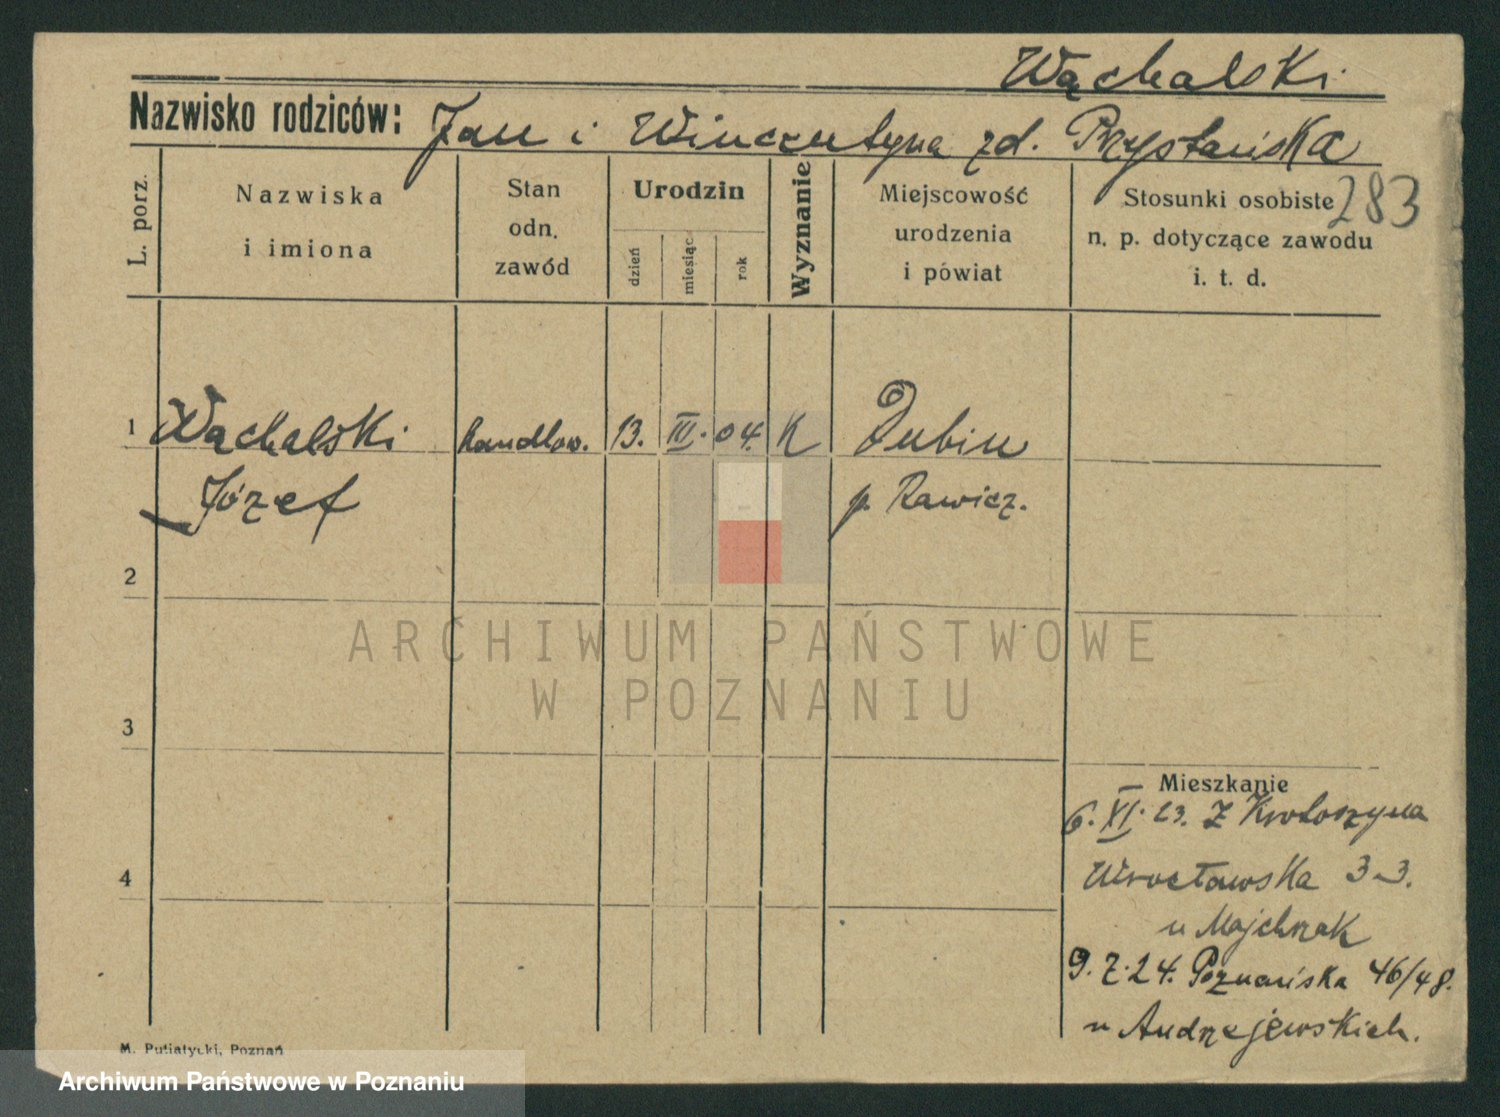 Wąchalski
Nazwisko rodziców: Jan i Wincentyna zd. Przystańska
283
L. porz.
Nazwiska
i imiona
Stan
odn.
zawód
Urodzin
dzień
miesiąc
rok
Wyznanie
Miejscowość
urodzenia
i powiat
Stosunki osobiste
n. p. dotyczące zawodu
i. t. d.
1 Wąchalski handlow. 13. III. 04. K Dubin
Józef p. Rawicz.
2
3
4
ARCHIWUM PAŃSTWOWE
W POZNANIU
Mieszkanie
6. XI. 23. z Krotoszyna
Wrocławska 3-3.
u Majchrzak
9. 7. 24. Poznańska 46/48.
u Andrzejewskich.
M. Putiatycki, Poznań
Archiwum Państwowe w Poznaniu